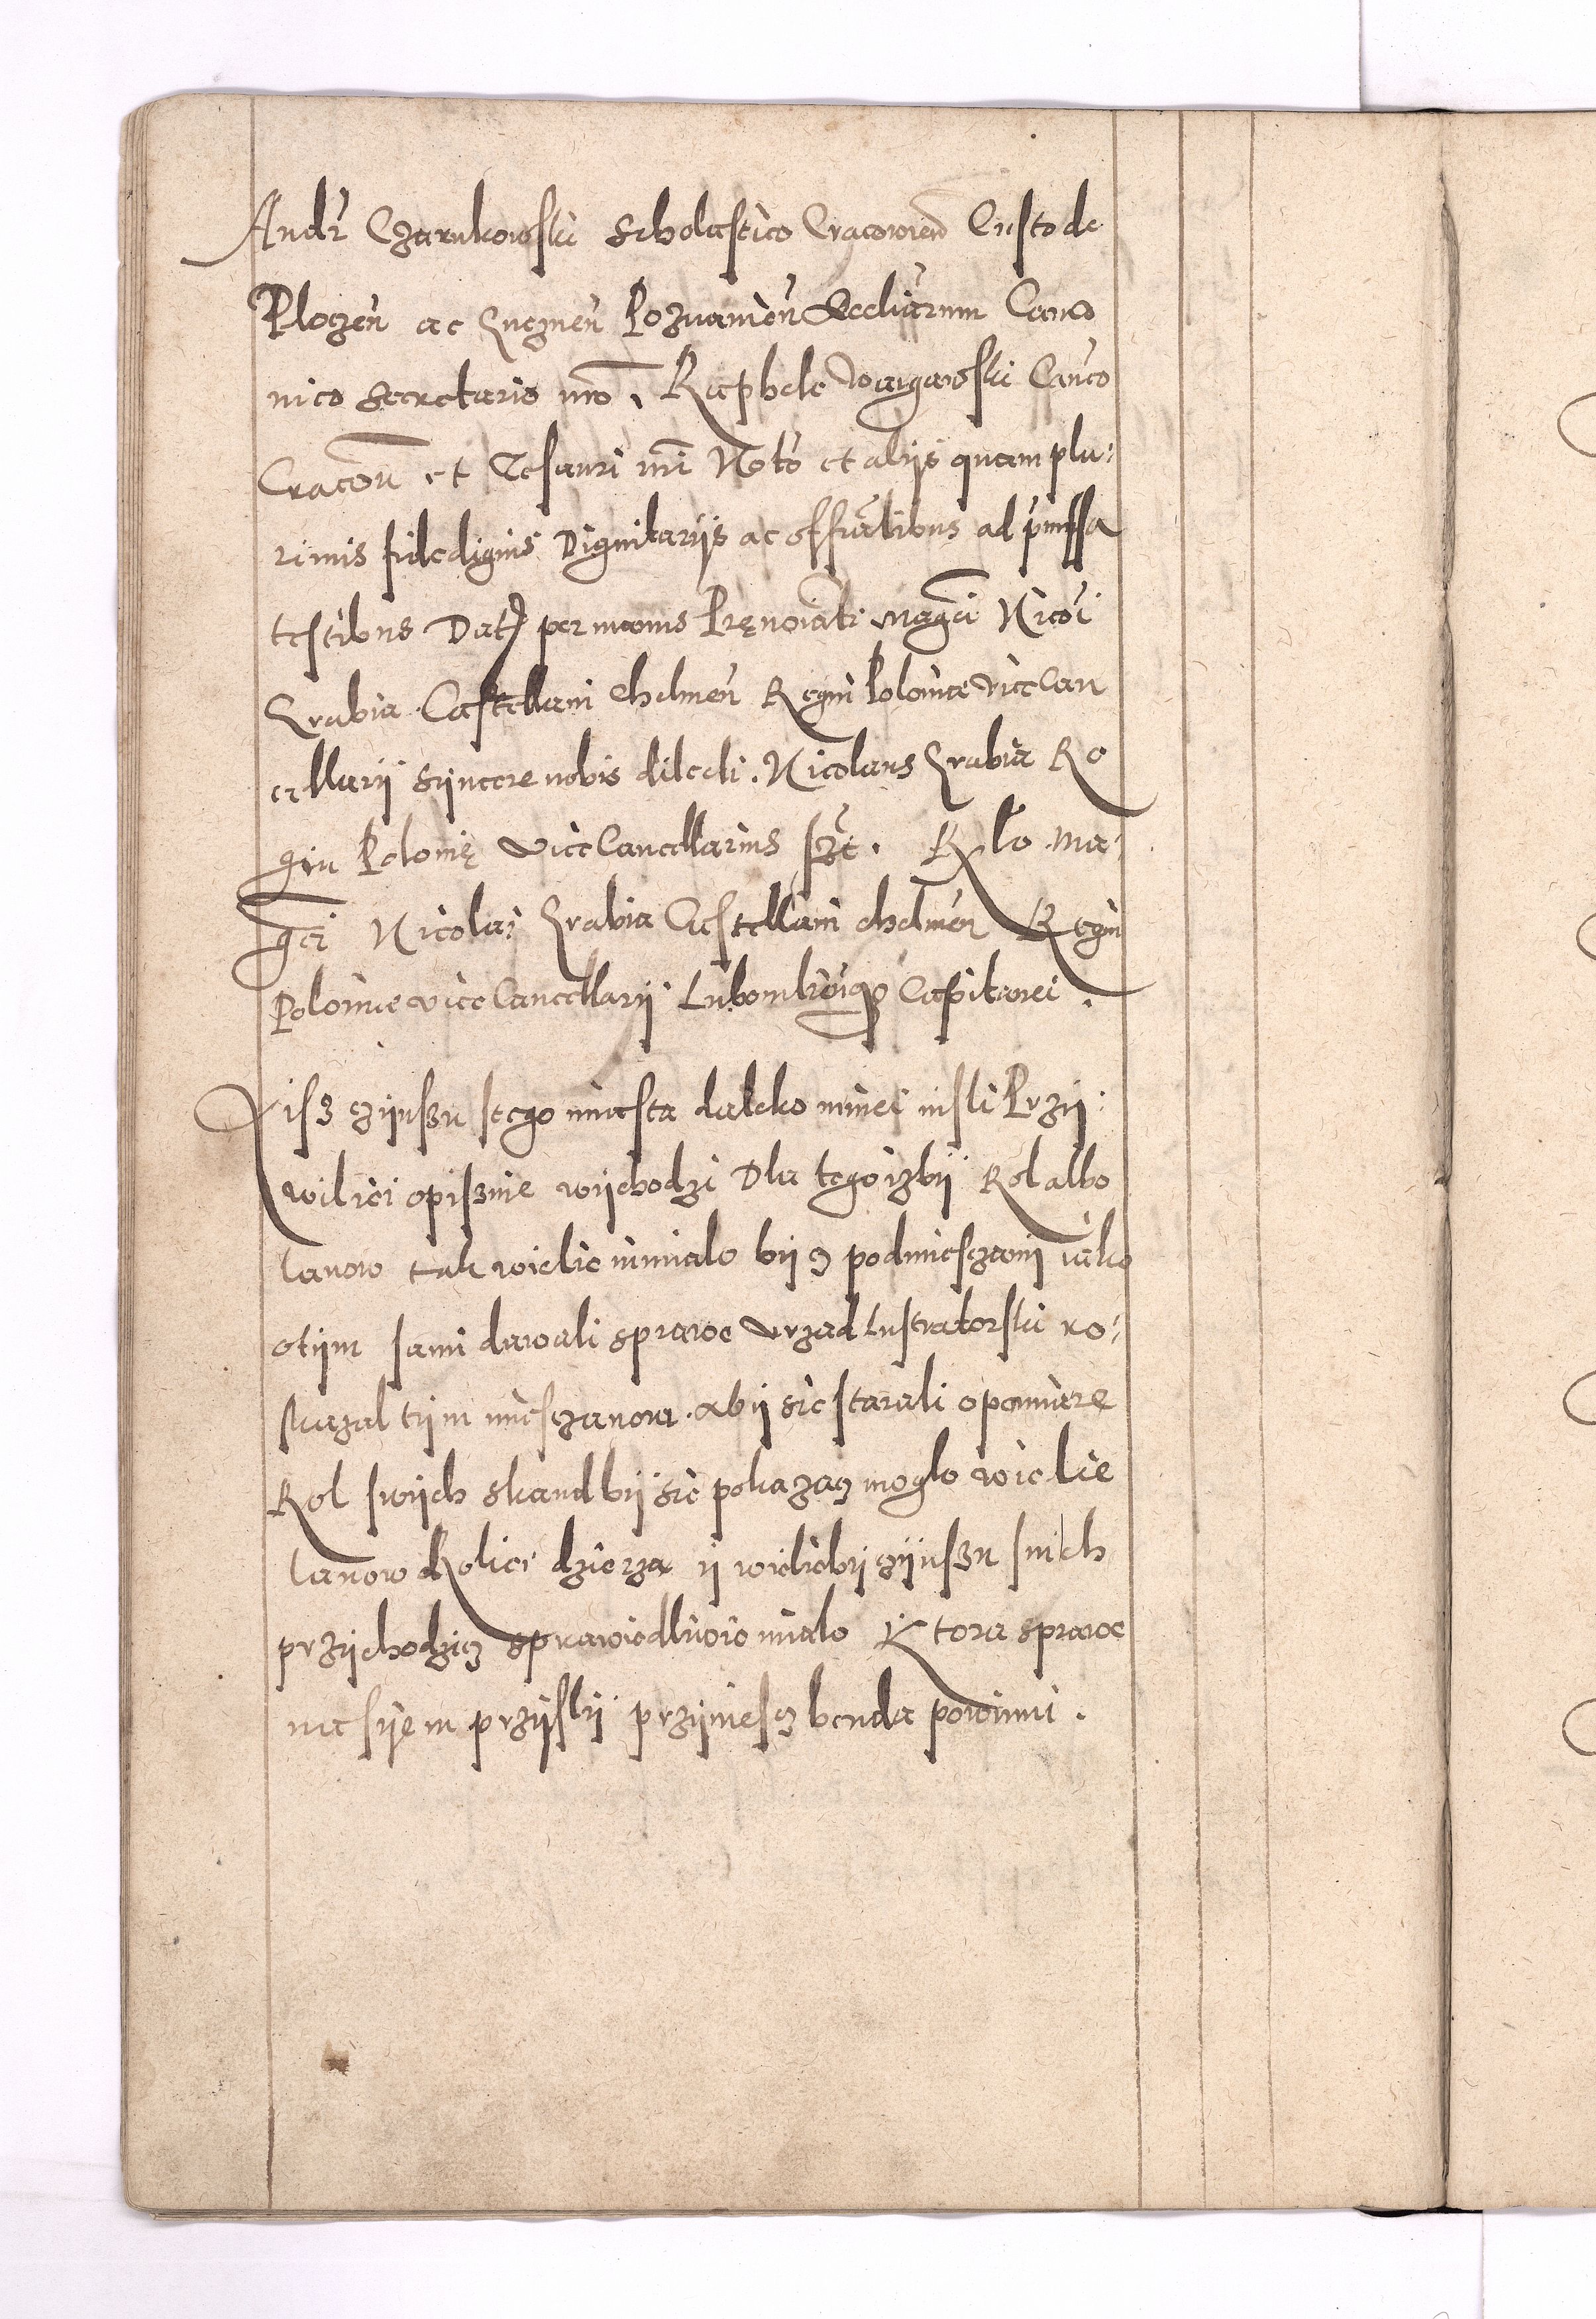 Andr Czarnkowski Scholastico Cracovien Custode
Ploczen ac Gneznen Poznanien Eccliarum Cano
nico Secretario nro. Raphele Wargawski Canco
Cracon et Tesauri nri Noto et alijs quamplu:
rimis fidedignis Dignitarijs ac offialibus ad pmissa
testibus Dat per manus Prenoiati Magci Nicoi
Grabia Castellani Chelmen Regni Polonie Vice Can
cellarij syncere nobis dilecti. Nicolaus Grabia Re
gni Polonię ViceCancellarius sszt. Rlo Ma:
gci Nicolai Grabia Castellani Chelmen Regni
Polonie ViceCancellarij Capitanei.
Isz czijnszu stego miasta daleko mniei nisli Przij:
wiliei opisznie wijchodzi Dla tego izbij Rol albo
Lanow tak wielie niemialo bijcz podmiesczanij iako
otijm sami dawali sprawe Vrzad Lustratorski ro:
skazal tijm miesczanom abij sie starali o pomiare
Rol swijch skandbij sie pokazacz moglo wielie
Lanow Roliei dzierza ij wieliebij czijnszu snich
przijchodzicz sprawiedliwie mialo Ktora sprawe
na sijem przijslij przijniescz benda powinni.